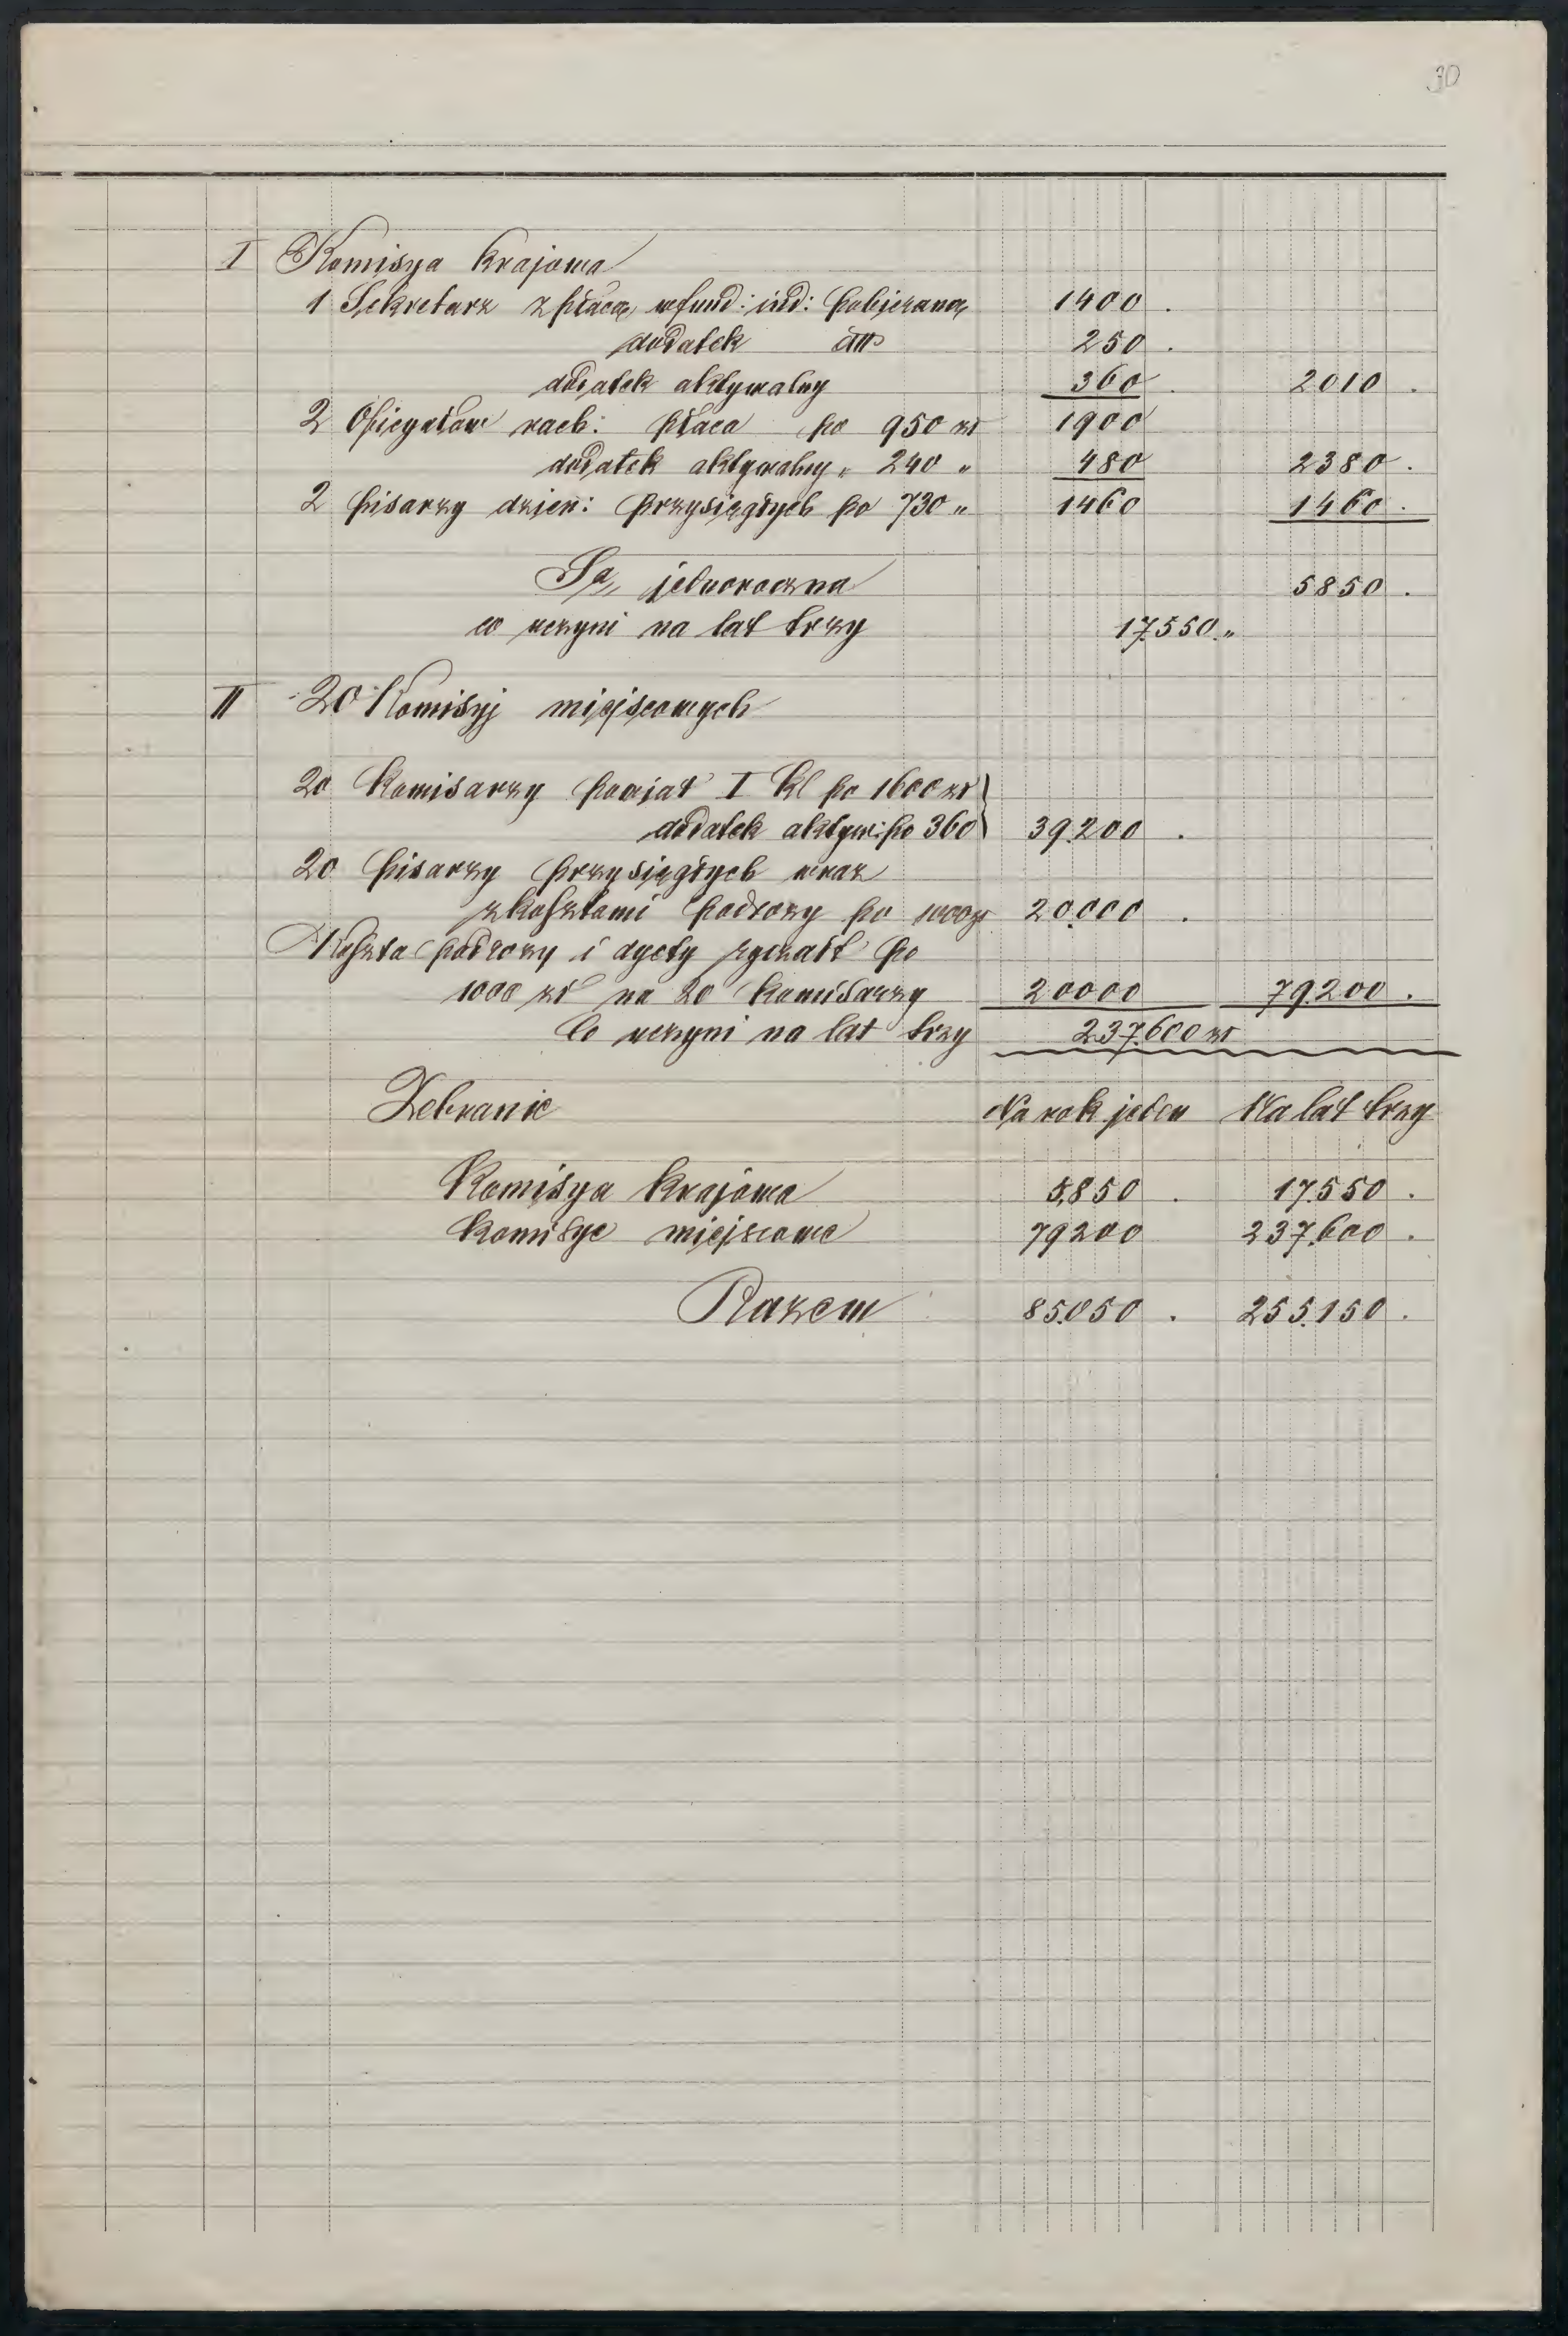 30
I Komisya krajowa
1 Sekretarz z płacą w fund: ind: pobieraną 1400 .
dodatek 250 .
dodatek aktywalny 360 . 2010 .
2 Oficyałów rach: płaca po 950 zł 1900
dodatek aktywalny „ 240 „ 480 2380 .
2 pisarzy dzien: przysięgłych po 730 „ 1460 1460 .
Sa„ jednoroczna 5850 .
co uczyni na lat trzy 17.550 „
II 20 Komisyj miejscowych
20 Komisarzy powiat I kl po 1600 zł
dodatek aktyw: po 360 39.200 .
20 pisarzy przysięgłych wraz
z kosztami podrozy po 1000 zł 20.000 .
Koszta podrozy i dyety ryczałt po
1000 zł na 20 komisarzy 20000 79.200 .
Co uczyni na lat trzy 237.600 zł
Zebranie Na rok jeden Na lat trzy
Komisya krajowa 5,850 . 17.550 .
Komisye miejscowe 79200 237.600 .
Razem 85.050 . 255.150 .